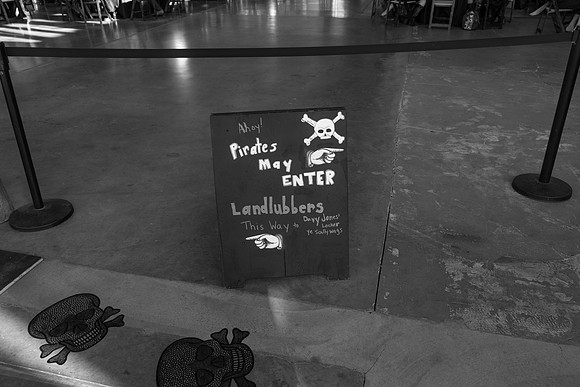 Ahoy!
Pirates
May
ENTER
Landlubbers
This Way to Davy Jones'
Locker
ye Scallywags